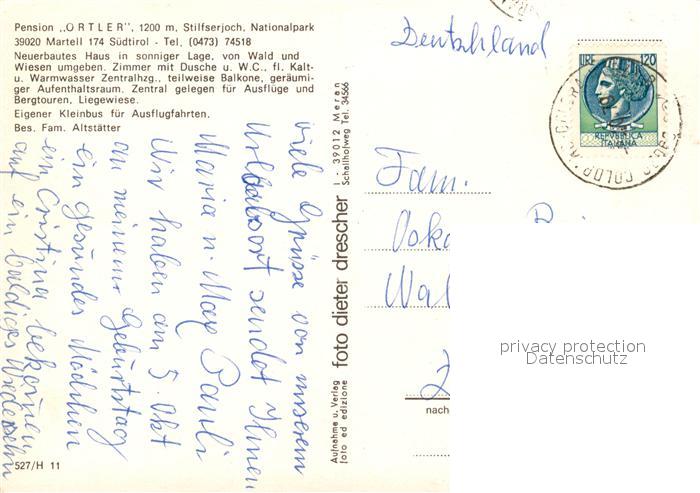 Pension „ORTLER", 1200 m, Stilfserjoch, Nationalpark
39020 Martell 174 Südtirol - Tel. (0473) 74518
Neuerbautes Haus in sonniger Lage, von Wald und
Wiesen umgeben. Zimmer mit Dusche u. W.C., fl. Kalt-
u. Warmwasser Zentralhzg., teilweise Balkone, geräumi-
ger Aufenthaltsraum. Zentral gelegen für Ausflüge und
Bergtouren, Liegewiese.
Eigener Kleinbus für Ausflugfahrten.
Bes. Fam. Altstätter
viele Grüsse von unserem
Urlaubsort sendet Ihnen
Maria u. Max Pauli
Wir haben am 5. Okt
an meinem Geburtstag
ein gesundes Mädchen
ein Cristina bekommen
auf ein baldiges Wiedersehn
527/H 11
Aufnahme u. Verlag
foto ed edizione
foto dieter drescher
I - 39012 Meran
Schallhofweg Tel. 34566
Deutschland
LIRE 120
REPVBBLICA
ITALIANA
Fam.
Oska
Wal
nach
privacy protection
Datenschutz